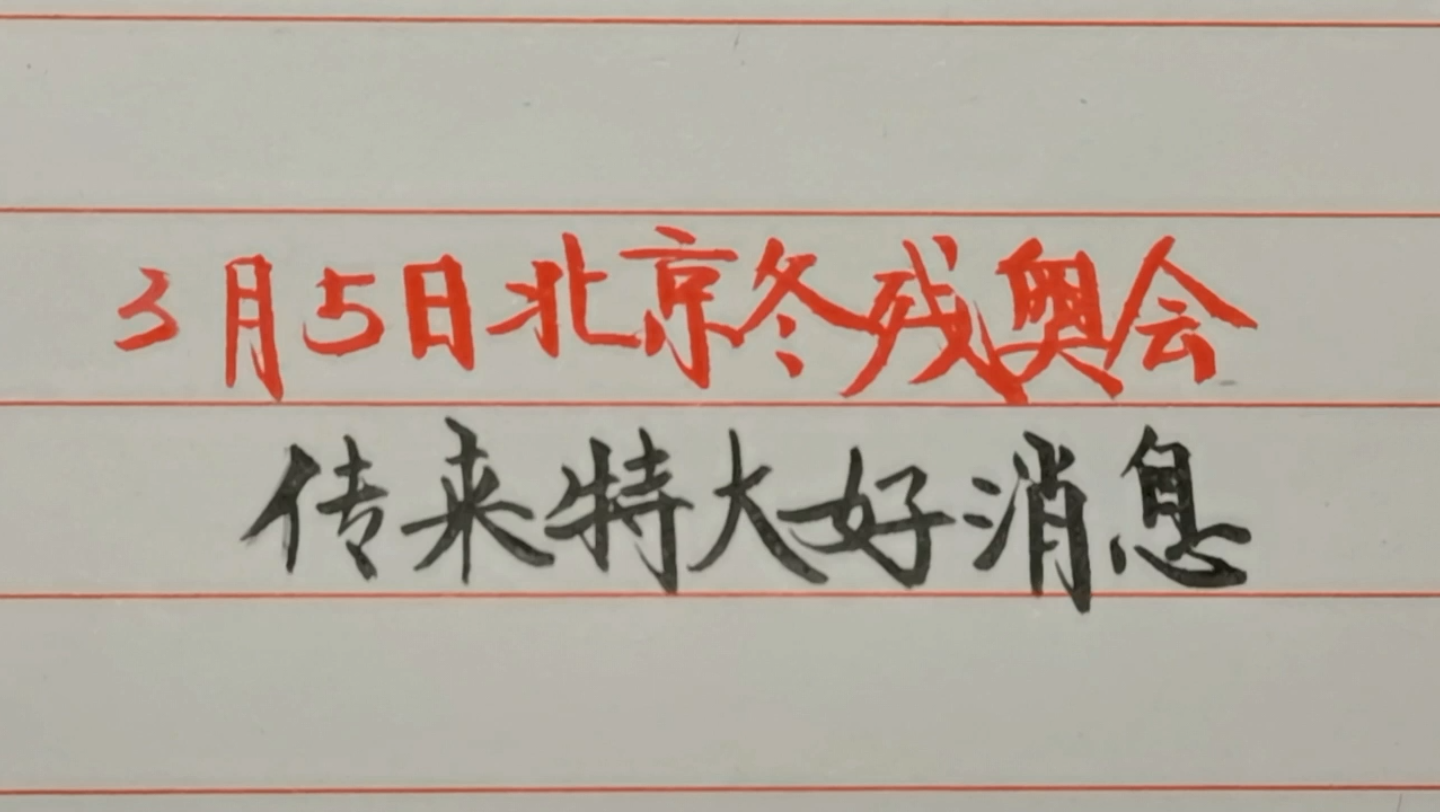 3月5日北京冬残奥会
传来特大好消息